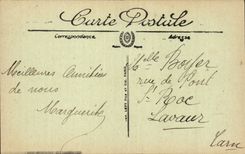 Carte Postale
Correspondance
Adresse
Meilleures Amitiés
de nous
Marguerite
Mlle Boyer
rue du Pont
St Roc
Lavaur
Tarn